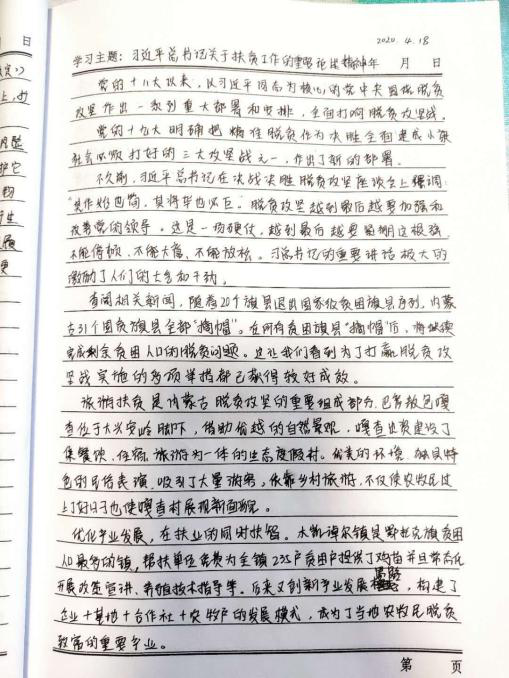 2020.4.18
学习主题：习近平总书记关于扶贫工作的重要论述精神 年 月 日
党的十八大以来，以习近平同志为核心的党中央围绕脱贫
攻坚作出一系列重大部署和安排，全面打响脱贫攻坚战。
党的十九大明确把精准脱贫作为决胜全面建成小康
社会必须打好的三大攻坚战之一，作出了新的部署。
不久前，习近平总书记在决战决胜脱贫攻坚座谈会上强调：
“其作始也简，其将毕也必巨。”脱贫攻坚越到最后越要加强和
改善党的领导。这是一场硬仗，越到最后越要绷紧这根弦，
不能停顿、不能大意、不能放松。习总书记的重要讲话极大的
激励了人们的士气和干劲。
查阅相关新闻，随着20个旗县退出国家级贫困旗县序列，内蒙
古31个国贫旗县全部“摘帽”。在所有贫困旗县“摘帽”后，将继续
完成剩余贫困人口的脱贫问题。这让我们看到为了打赢脱贫攻
坚战实施的多项举措都已获得较好成效。
旅游扶贫是内蒙古脱贫攻坚的重要组成部分，巴彦敖包嘎
查位于大兴安岭脚下，借助优越的自然景观，嘎查出资建设了
集餐饮、住宿、旅游为一体的生态度假村。优美的环境、独具特
色的民俗表演，吸引了大量游客，依靠乡村旅游，不仅使农牧民过
上了好日子也使嘎查村展现新面貌。
优化产业发展，在扶业的同时扶智。木凯淖尔镇是鄂托克旗贫困
人口最多的镇，帮扶单位免费为全镇235户贫困户提供了鸡苗并且常态化
开展政策宣讲、养殖技术指导等。后来又创新产业发展思路，构建了
企业＋基地＋合作社＋农牧户的发展模式，成为了当地农牧民脱贫
致富的重要产业。
第 页